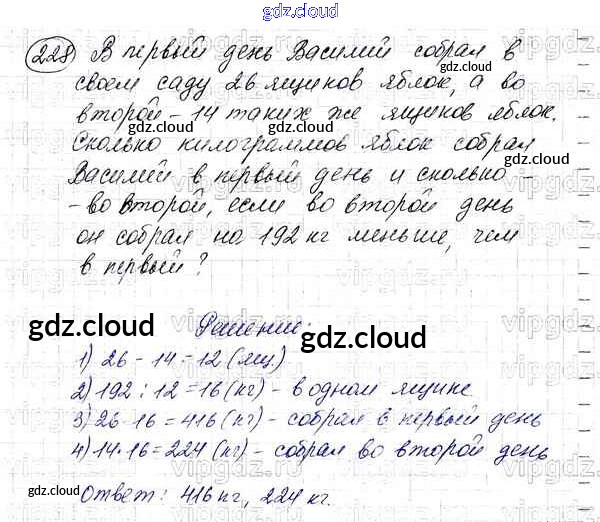 gdz.cloud
228 В первый день Василий собрал в
своем саду 26 ящиков яблок, а во
второй - 14 таких же ящиков яблок.
Сколько килограммов яблок собрал
Василий в первый день и сколько -
- во второй, если во второй день
он собрал на 192 кг меньше, чем
в первый?
Решение:
1) 26 - 14 = 12 (ящ)
2) 192 : 12 = 16 (кг) - в одном ящике
3) 26 · 16 = 416 (кг) - собрал в первый день
4) 14 · 16 = 224 (кг) - собрал во второй день
Ответ: 416 кг, 224 кг.
gdz.cloud
gdz.cloud
gdz.cloud
gdz.cloud
gdz.cloud
gdz.cloud
gdz.cloud
gdz.cloud
gdz.cloud
gdz.cloud
gdz.cloud